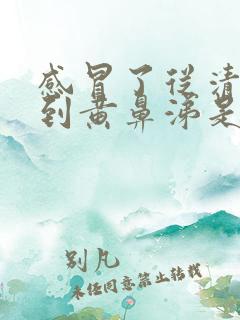 感冒了从清
到黄鼻涕是
别凡
未经同意禁止转载